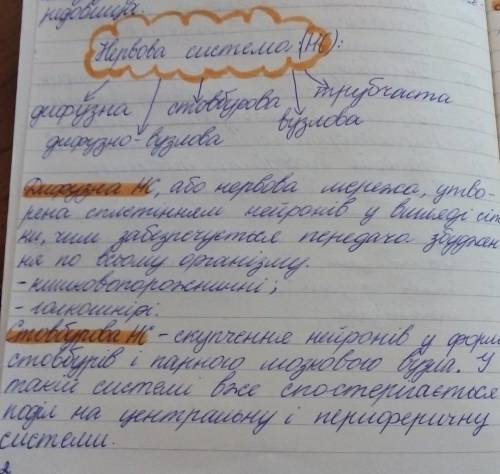 Нервова система (НС):
дифузна стовбурова трубчаста
дифузно-вузлова вузлова
Дифузна НС, або нервова мережа, утво-
рена сплетінням нейронів у вигляді сіт
ки, чим забезпечується передача збуджен
ня по всьому організму.
- кишковопорожнинні;
- голкошкірі.
Стовбурова НС - скупчення нейронів у форм
стовбурів і парного мозкового вузла. У
такій системі вже спостерігається
поділ на центральну і периферичну
системи.